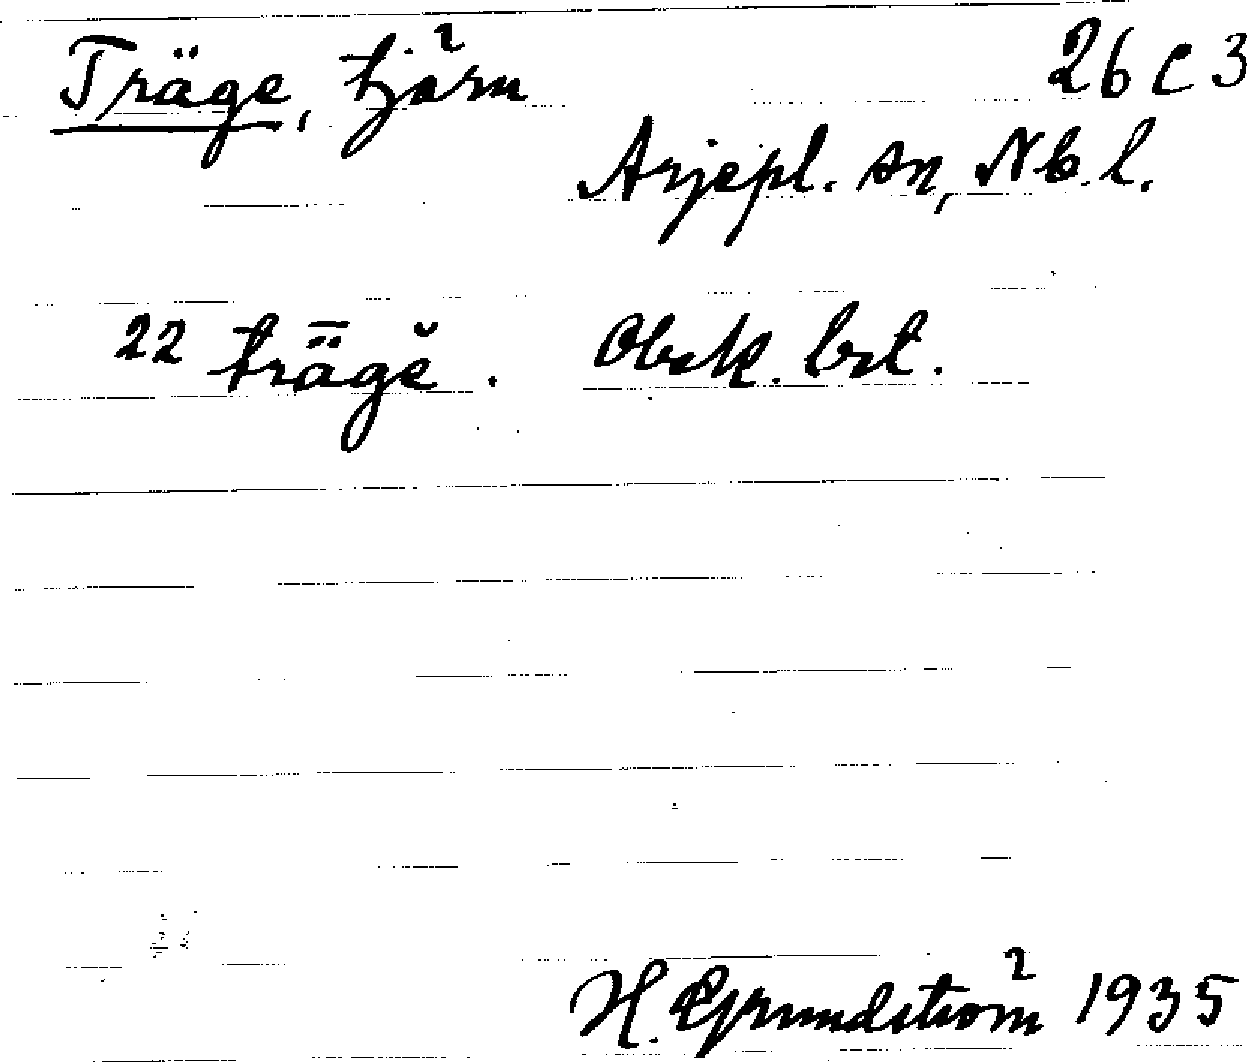 Träge, tjärn 26 C 3
Arjepl. sn, Nb. l.
22 trǟgĕ. Obek. bet.
H. Grundström 1935